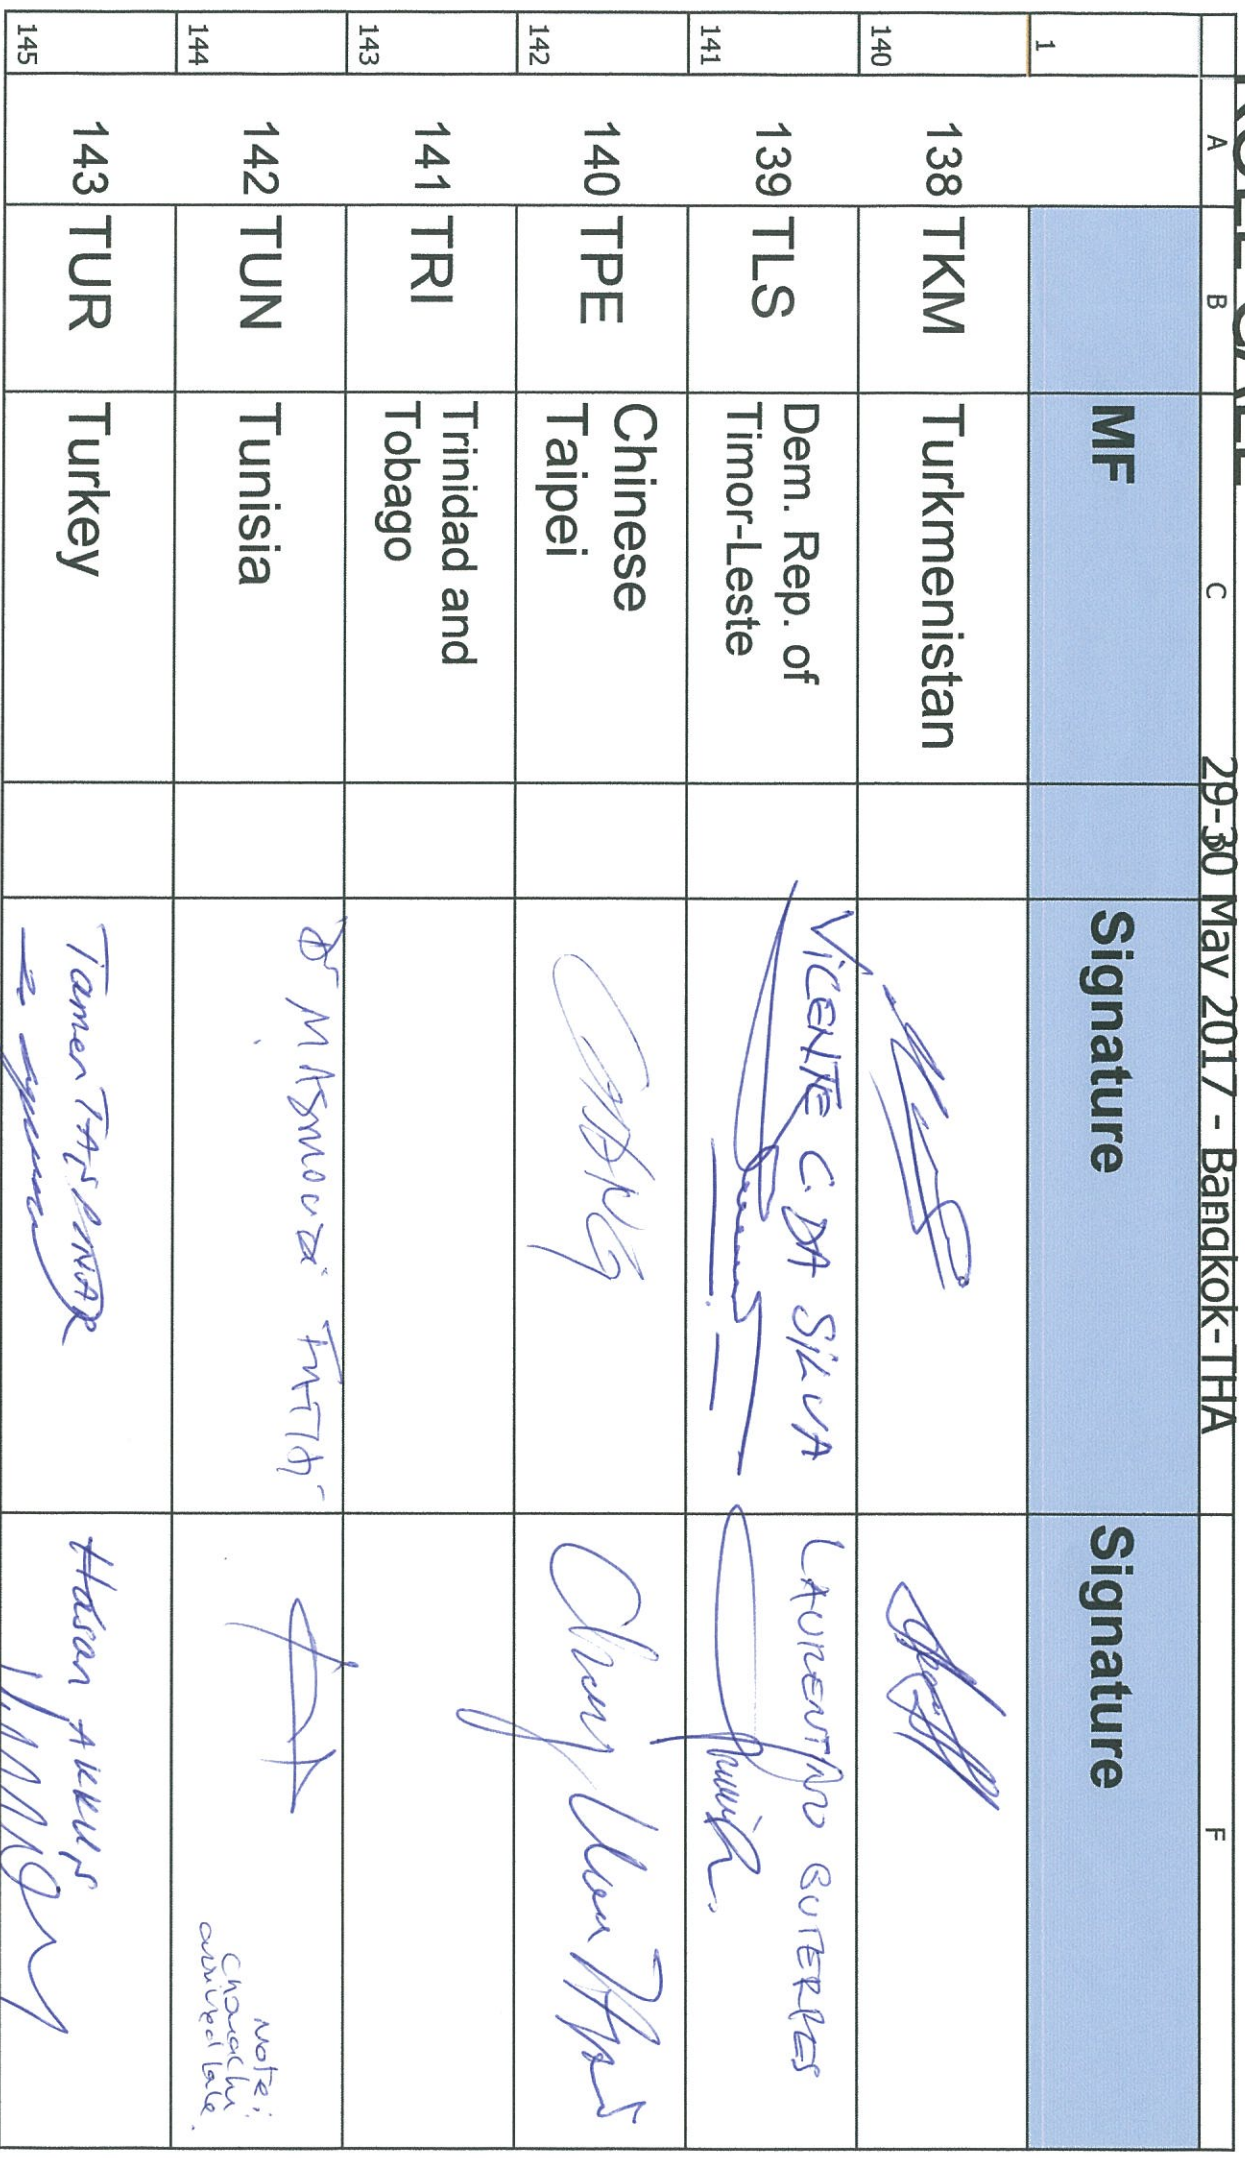 ROLL CALL
29-30 May 2017 - Bangkok-THA
A B C F
1 MF Signature Signature
140 138 TKM Turkmenistan
141 139 TLS Dem. Rep. of
Timor-Leste
VICENTE C. DA SILVA
LAURENTINO GUTERRES
142 140 TPE Chinese
Taipei
CHANG
143 141 TRI Trinidad and
Tobago
144 142 TUN Tunisia
Dr MASMOUDI FATHI
Note:
arrived late.
145 143 TUR Turkey
Tamer TAŞPINAR
Hasan AKKUŞ